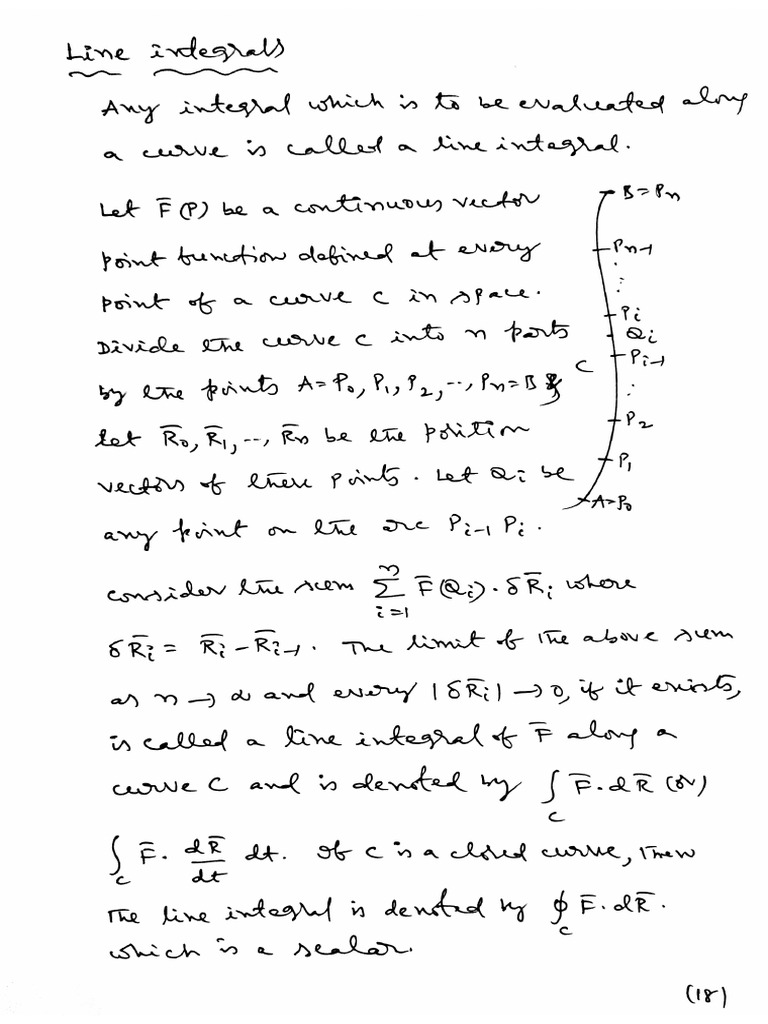 Line integrals
Any integral which is to be evaluated along
a curve is called a line integral.
Let F̄(P) be a continuous vector
point function defined at every
point of a curve C in space.
Divide the curve C into n parts
by the points A=P₀, P₁, P₂, ..., Pₙ=B
Let R̄₀, R̄₁, --, R̄ₙ be the position
vectors of these points. Let Qᵢ be
any point on the arc Pᵢ₋₁ Pᵢ.
B=Pₙ
Pₙ₋₁
⋮
Pᵢ
Qᵢ
Pᵢ₋₁
C
⋮
P₂
P₁
A=P₀
consider the sum ∑ⁿᵢ₌₁ F̄(Qᵢ). δR̄ᵢ where
δR̄ᵢ = R̄ᵢ - R̄ᵢ₋₁. The limit of the above sum
as n → ∞ and every |δR̄ᵢ| → 0, if it exists,
is called a line integral of F̄ along a
curve C and is denoted by ∫_C F̄. dR̄ (or)
∫_C F̄. dR̄/dt dt. If C is a closed curve, then
the line integral is denoted by ∮_C F̄. dR̄.
which is a scalar.
(18)